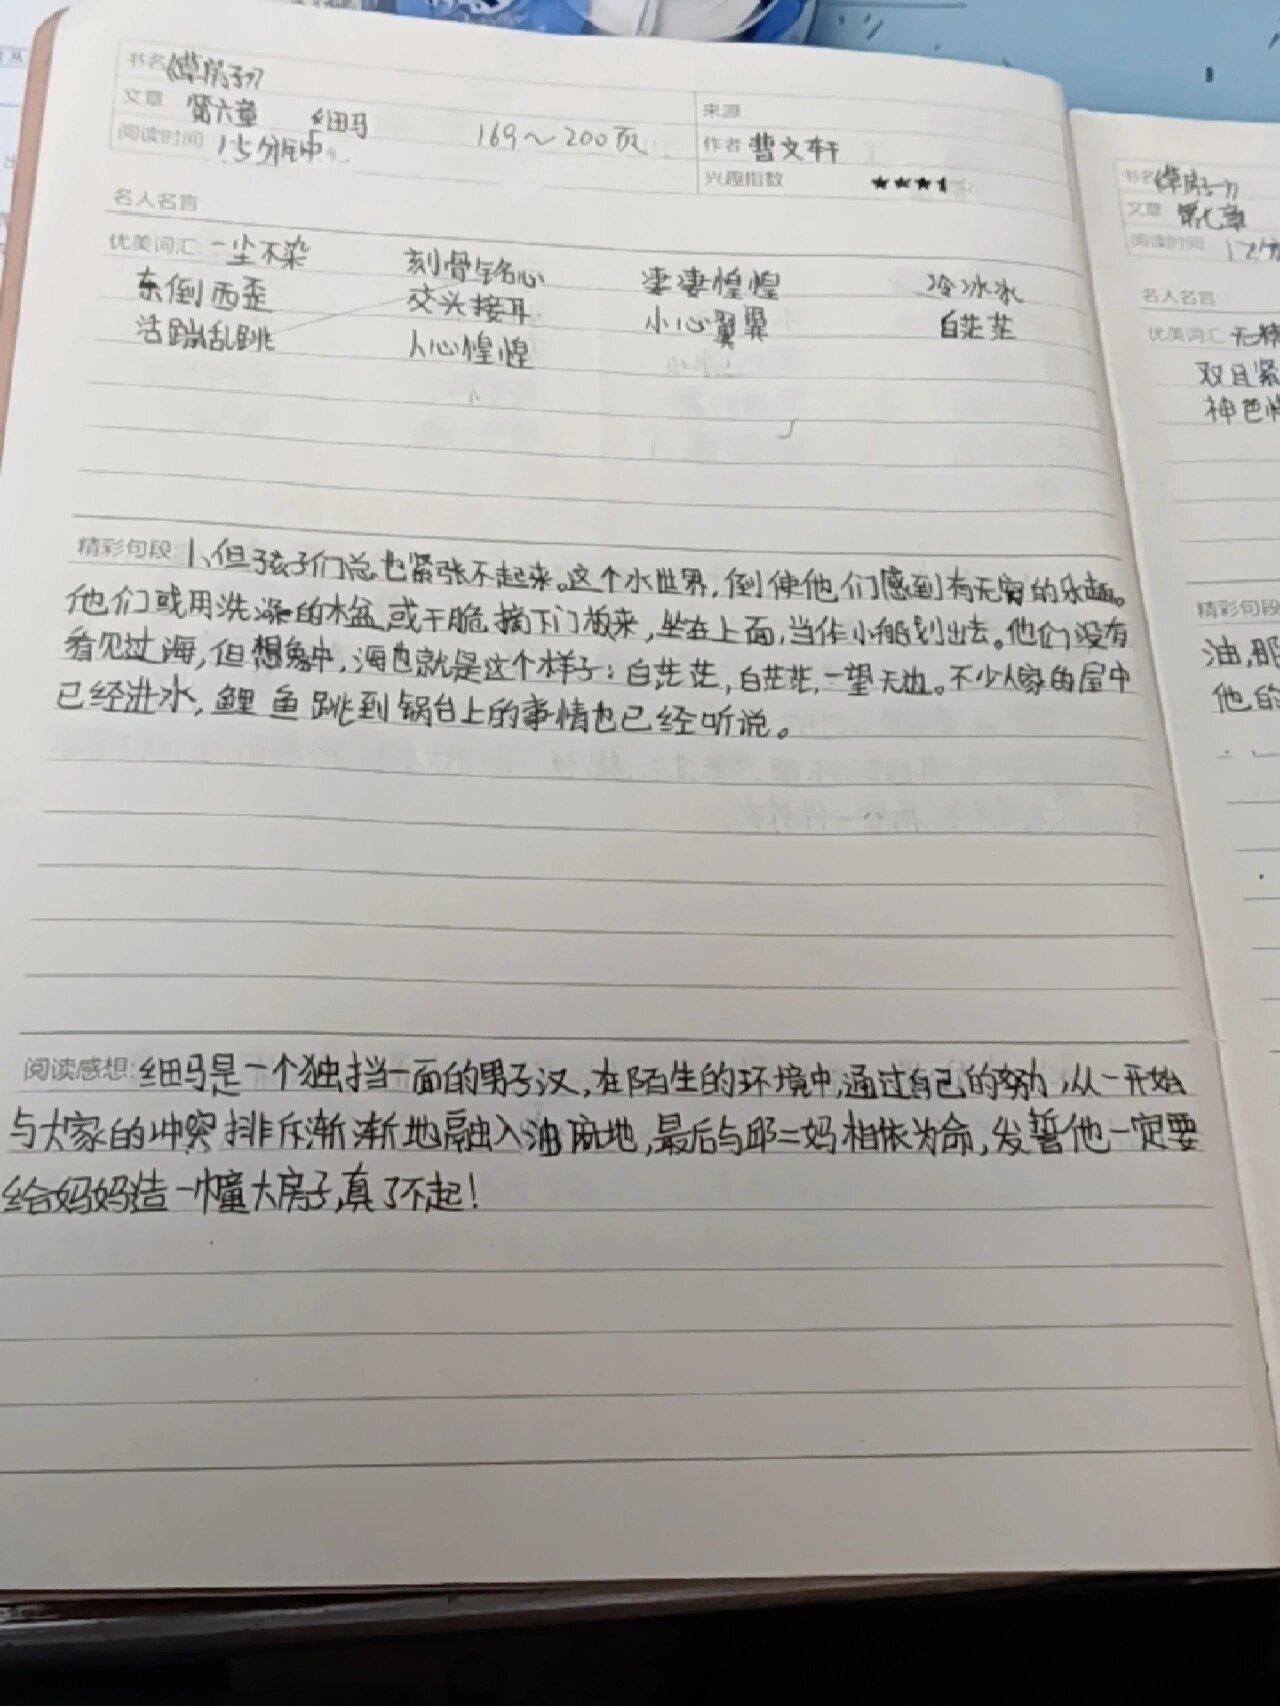 书名 《草房子》
文章 第六章 细马 169～200页 来源
阅读时间 15分钟 作者 曹文轩
兴趣指数 ★★★
名人名言
优美词汇 一尘不染 刻骨铭心 凄凄惶惶 冷冰冰
东倒西歪 交头接耳 小心翼翼 白茫茫
活蹦乱跳 人心惶惶
精彩句段 1、但孩子们总也紧张不起来。这个水世界，倒使他们感到有无穷的乐趣。
他们或用洗澡的木盆，或干脆摘下门板来，坐在上面，当作小船划出去。他们没有
看见过海，但想象中，海也就是这个样子：白茫茫，白茫茫，一望无边。不少人家的屋中
已经进水，鲤鱼跳到锅台上的事情也已经听说。
阅读感想：细马是一个独挡一面的男子汉，在陌生的环境中，通过自己的努力，从一开始
与大家的冲突排斥渐渐地融入油麻地，最后与邱二妈相依为命，发誓他一定要
给妈妈造一幢大房子，真了不起！
书名 《草房子》
文章 第七章
阅读时间 12分
名人名言
优美词汇 无精
双目紧
神色
精彩句段
油，那
他的